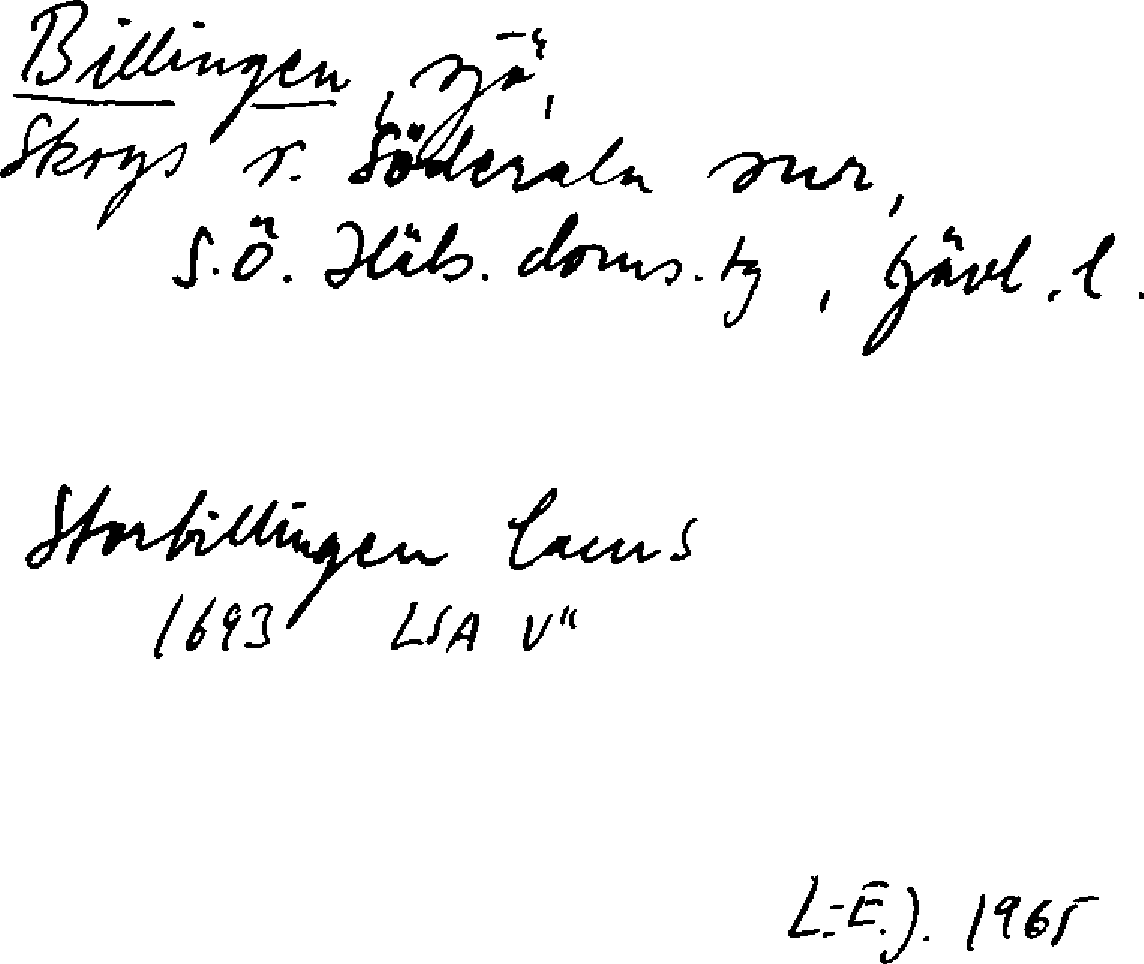 Billingen, sjö,
Skogs s. Söderala snr,
S.Ö. Häls. doms. tg, Gävl. l.
Storbillingen lacus
1693 LSA V"
L.-E.J. 1965